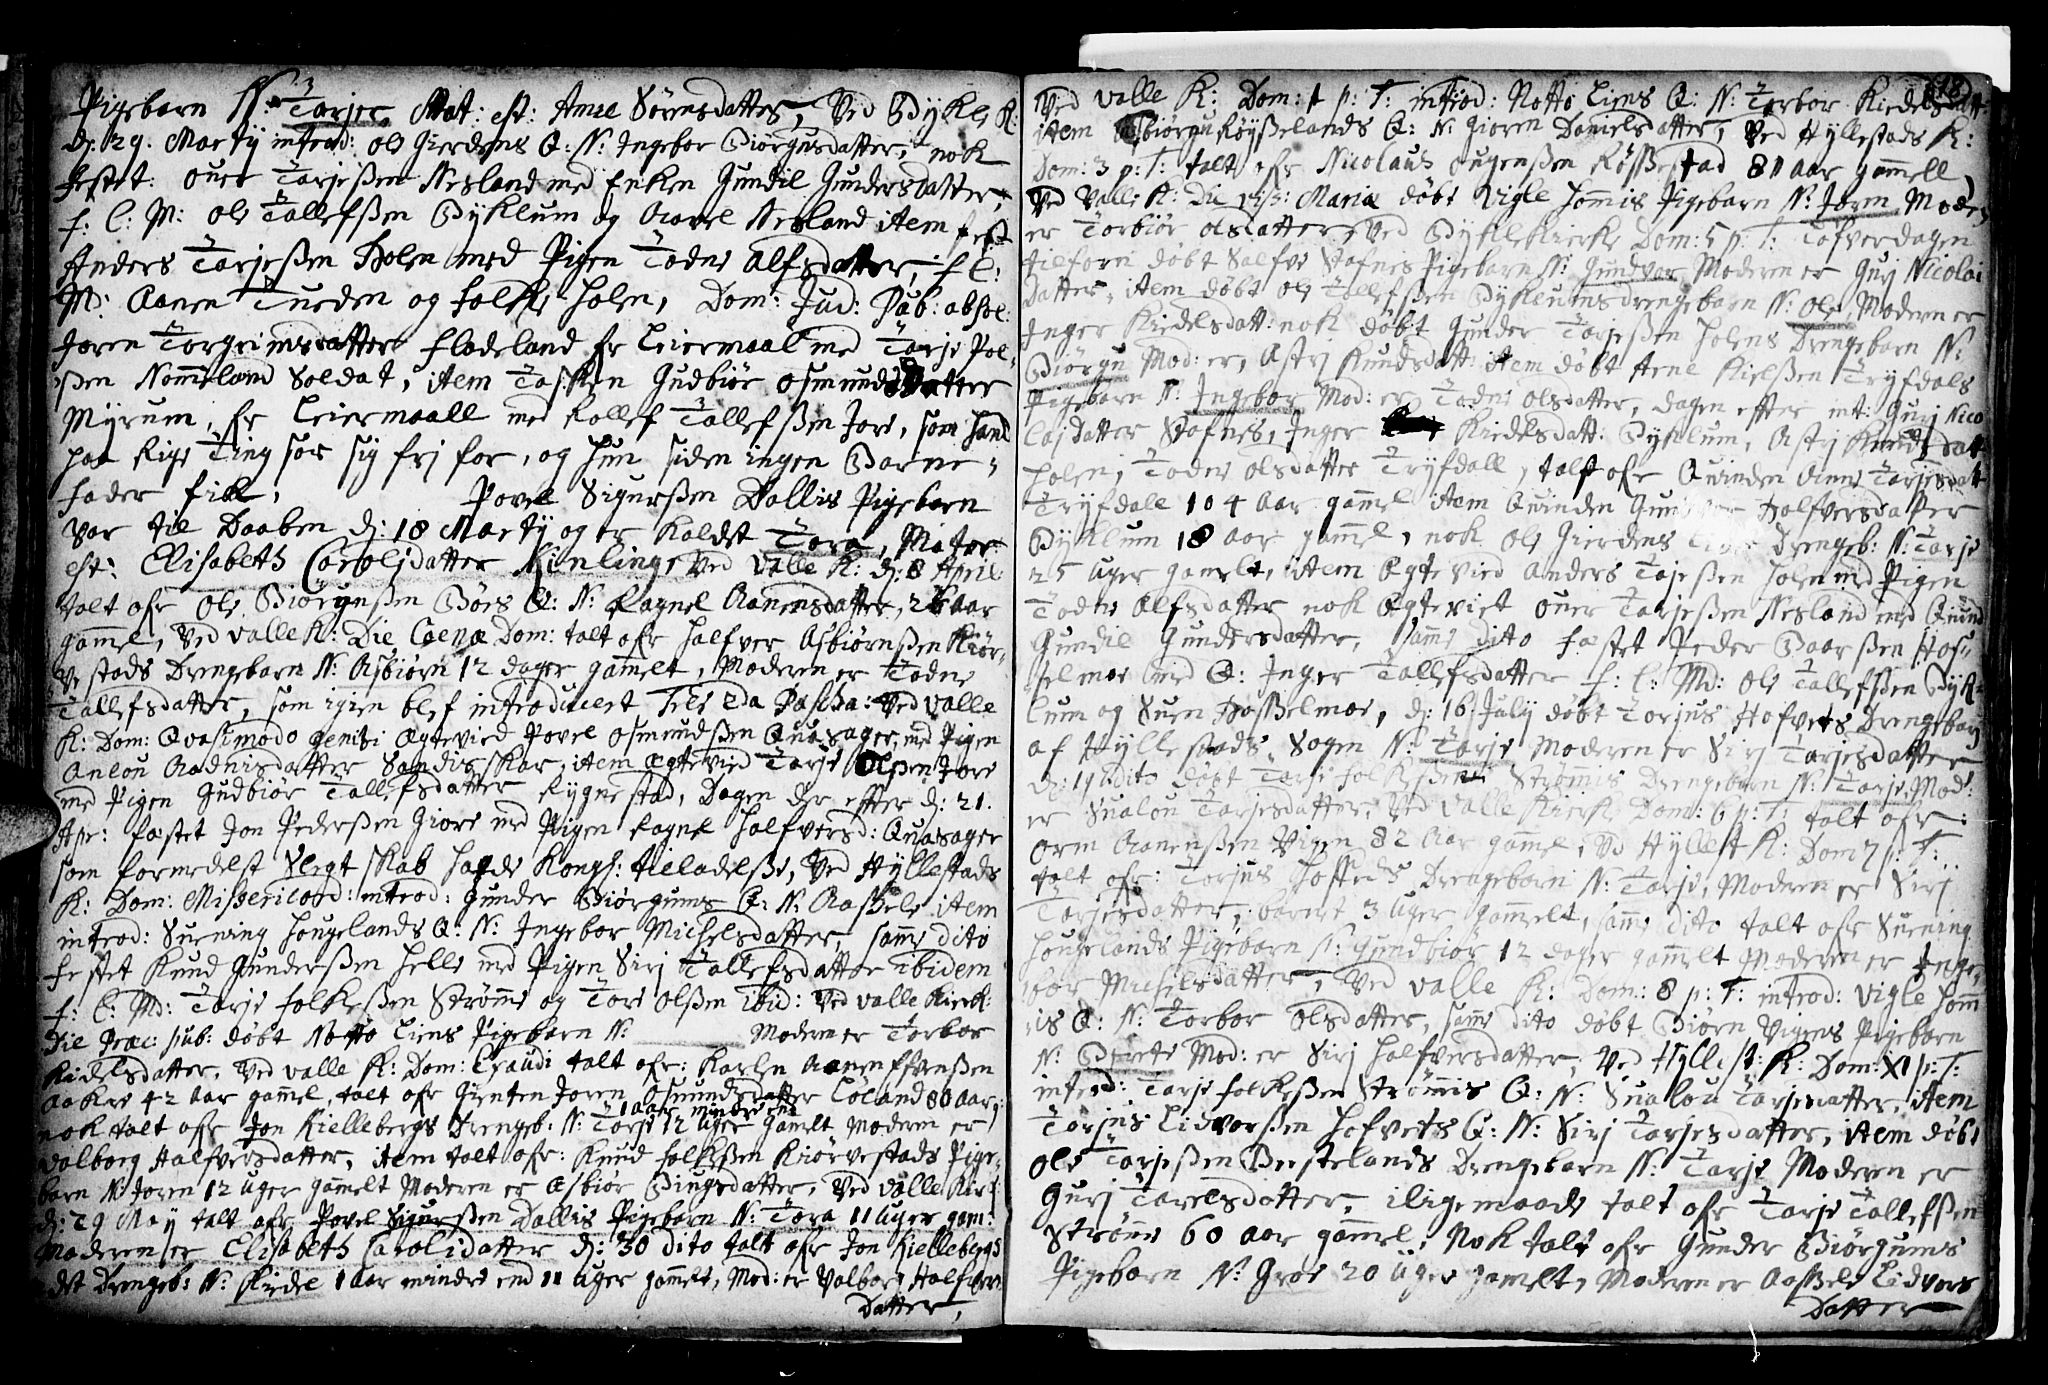 Pigebarn N: Tarjer Mat: est: Anne Sörensdatter, Ved Bykle K:
d: 29. Martÿ introd: Ole Gierdens Q: N: Ingebor Biörgusdatter, nok
festet: Ouer Tarjeßen Nesland med Enken Gundil Gundersdatter,
f: l: M: Ole Tallefßen Byklum og Aavel Nesland item fest
Anders Tarjeßen Holen med Pigen Todne Alfsdatter, f l:
M: Aanen Tueden og Folke Holen, Dom: Jud: Pub: absol:
Joren Torgrimsdatter Flodeland for Leiermaal med Tarje Pol-
ßen Nommeland Soldat, item Taskken Gudbiör Osmundsdatter
Myrum, for Leiermaall med Rollef Tallefßen Jore, som hand
paa Rige Ting sor sig frj for, og hun siden ingen Barne-
fader fik, Povel Sigurßen Dallis Pigebarn
var til Daaben d: 18 Martÿ og er kaldet Tora, Mater
est: Elisabeth Carolidatter Kinling, Ved Valle K: d: 8 April:
talt ofr Ole Biörgußen Börs Q: N: Ragnel Aanensdatter, 28 aar
gammel, Ved Valle K: Die Coenæ Dom: talt ofr Halfver Asbiörnßen Kiör-
vestads Drengebarn N: Asbiörn 12 dager gammelt, Moderen er Todne
Tallefsdatter, som igien blef introducert Fer: 2da Pascha: Ved Valle
K: Dom: Qvasimodo geniti Ægtevied Povel Osmundßen Quasager, med Pigen
Anlou Aadnisdatter Sandisskar, item ægtevied Tarje Olßen Jore
med Pigen Gudbiör Tallefsdatter Rygnestad, Dagen der effter d: 21.
Apr: fæstet Jon Pederßen Giore med Pigen Ragnel Halfversd: Quasager
som formedelst Slegtskab hafde Kongl: tilladelße, Ved Hyllestads
K: Dom: Missericord: introd: Gunder Biörgums Q: N: Aaßele item
introd: Suening Hougelands Q: N: Ingebor Michelsdatter, samme dito
festet Knud Gunderßen Helle med Pigen Sirj Tallefsdatter ibidem
f: l: M: Tarje Folkeßen Strömme og Tore Olßen ibid: Ved Valle Kirk:
Die Præc: pub: döbt Notto Liens Pigebarn N: Moderen er Torbor
Kidelsdatter, Ved Valle K: Dom: Exaudi talt ofr: Karlen Aanen Efvenßen
Aakre 42 aar gammel, talt ofr Gienten Joren Osmundsdatter Löland 80 aar,
1 aar mindre end
nok talt ofr Jon Kiellebergs Drengeb: N: Torje 12 Uger gamelt Moderen er
Valborg Halfversdatter, item talt ofr: Knud Folkeßen Kiörvestads Pige-
barn N: Joren 12 Uger gammelt Moderen er Asbiör Bingsdatter, Ved Valle Kirk:
d: 29 Maÿ talt ofr Povel Sigurßen Dallis Pigebarn N: Tora 11 Uger gam:
Moderen er Elisabeth Carolidatter d: 30 dito talt ofr Jon Kiellebergs
det Drengeb: N: Kidel 1 aar mindre end 11 Uger gammelt, Mod: er Valbor Halfvers
Datter,
Ved Valle K: Dom: 1 p: T: introd: Notto Liens Q: N: Torbor Kiedelsdatt:
item Asbiörgu Röyßelands Q: N: Gioren Danielsdatter, Ved Hyllestads K:
Dom: 3 p: T: talt ofr Nicolaus Ougenßen Rößestad 80 aar gammell
Ved Valle K: Die Vis: Mariæ döbt Vigle Hommis Pigebarn N: Jorn, Moder
er Torbiör Olsdatter, Ved Bykle Kirke Dom: 5 p: T: Tofverdagen
tilforn döbt Salfve Stafnes Pigebarn N: Gundvor Moderen er Gurj Nicolai
Datter, item döbt Ole Tallefßen Byklums drengebarn N: Ole, Moderen er
Inger Kiedelsdatt: nok döbt Gunder Tarjeßen Holens Drengebarn N:
Biörgu Mod: er, Astrj Knudsdatt: item döbt Arne Kielßen Tryfdals
Pigebarn N: Ingebor Mod: er Todne Olsdatter, dagen effter int: Gurj Nico
lajdatter Stofnes, Inger Kiedelsdatt: Byklum, Astrj Knudsdatt
Holen, Todne Olsdatter Tryfdall, talt ofr Quinden Anne Tarjesdatt
Tryfdale 104 Aar gammel item Qvinden Gunvor Halfversdatter
Byklum 18 aar gammel, nok Ole Gierdens Drengeb: N: Tarje
25 Uger gamelt, item Ægtevied Anders Tajeßen Holen med Pigen
Todne Alfsdatter nok Ægteviet Ouer Tarjeßen Nesland med Quind
Gundil Gundersdatter, samme dito fæstet Peder Baarßen Hos-
selmoe med Q: Inger Tallefsdatter f: l: Md: Ole Tallefßen Byk-
lum og Suen Hosselmoe, d: 16 July döbt Torjus Hofvets Drengebarn
af Hyllestads Sogen N: Tarje Moderen er Sirj Tarjesdatter
d: 19 dito döbt Tarje Folkeßen Strömis Drengebarn N: Tarje, Mod:
er Sualou Tarjesdatter, Ved Valle Kirke Dom: 6 p: T: talt ofr:
Orm Aanenßen Vigen 82 Aar gammel, Ved Hyllest K: Dom 7 p: T:
talt ofr: Torjus Hofsteds Drengebarn N: Tarje, Moderen er Sirj
Tarjesdatter, barnet 3 Uger gammelt, samme dito talt ofr Suening
Hougelands Pigebarn N: Gundbiör 12 dager gammelt Moderen er Inge-
bor Michelsdatter, Ved Valle K: Dom: 8 p: T: introd: Vigle Homm
is Q: N: Torbor Olsdatter, samme dito döbt Biörn Vigens Pigebarn
N: Berete Mod: er Sirj Halfversdatter, Ved Hyllest: K: Dom: XI p: T:
introd: Tarje Folkeßen Strömmis Q: N: Sualou Tarjesdatter, item
Torjus Lidvorßen Hofvets Q: N: Sirj Tarjesdatter, item döbt
Ole Tarjeßen Bestelands Drengebarn N: Tarje Moderen er
Gurj Tarelsdatter, iligemaade talt ofr Tarje Tallefßen
Strömme 60 aar gammel, Nok talt ofr Gunder Biörgums
Pigebarn N: Groe 20 Uger gamelt, Moderen er Aaßele Lidvors
Datter